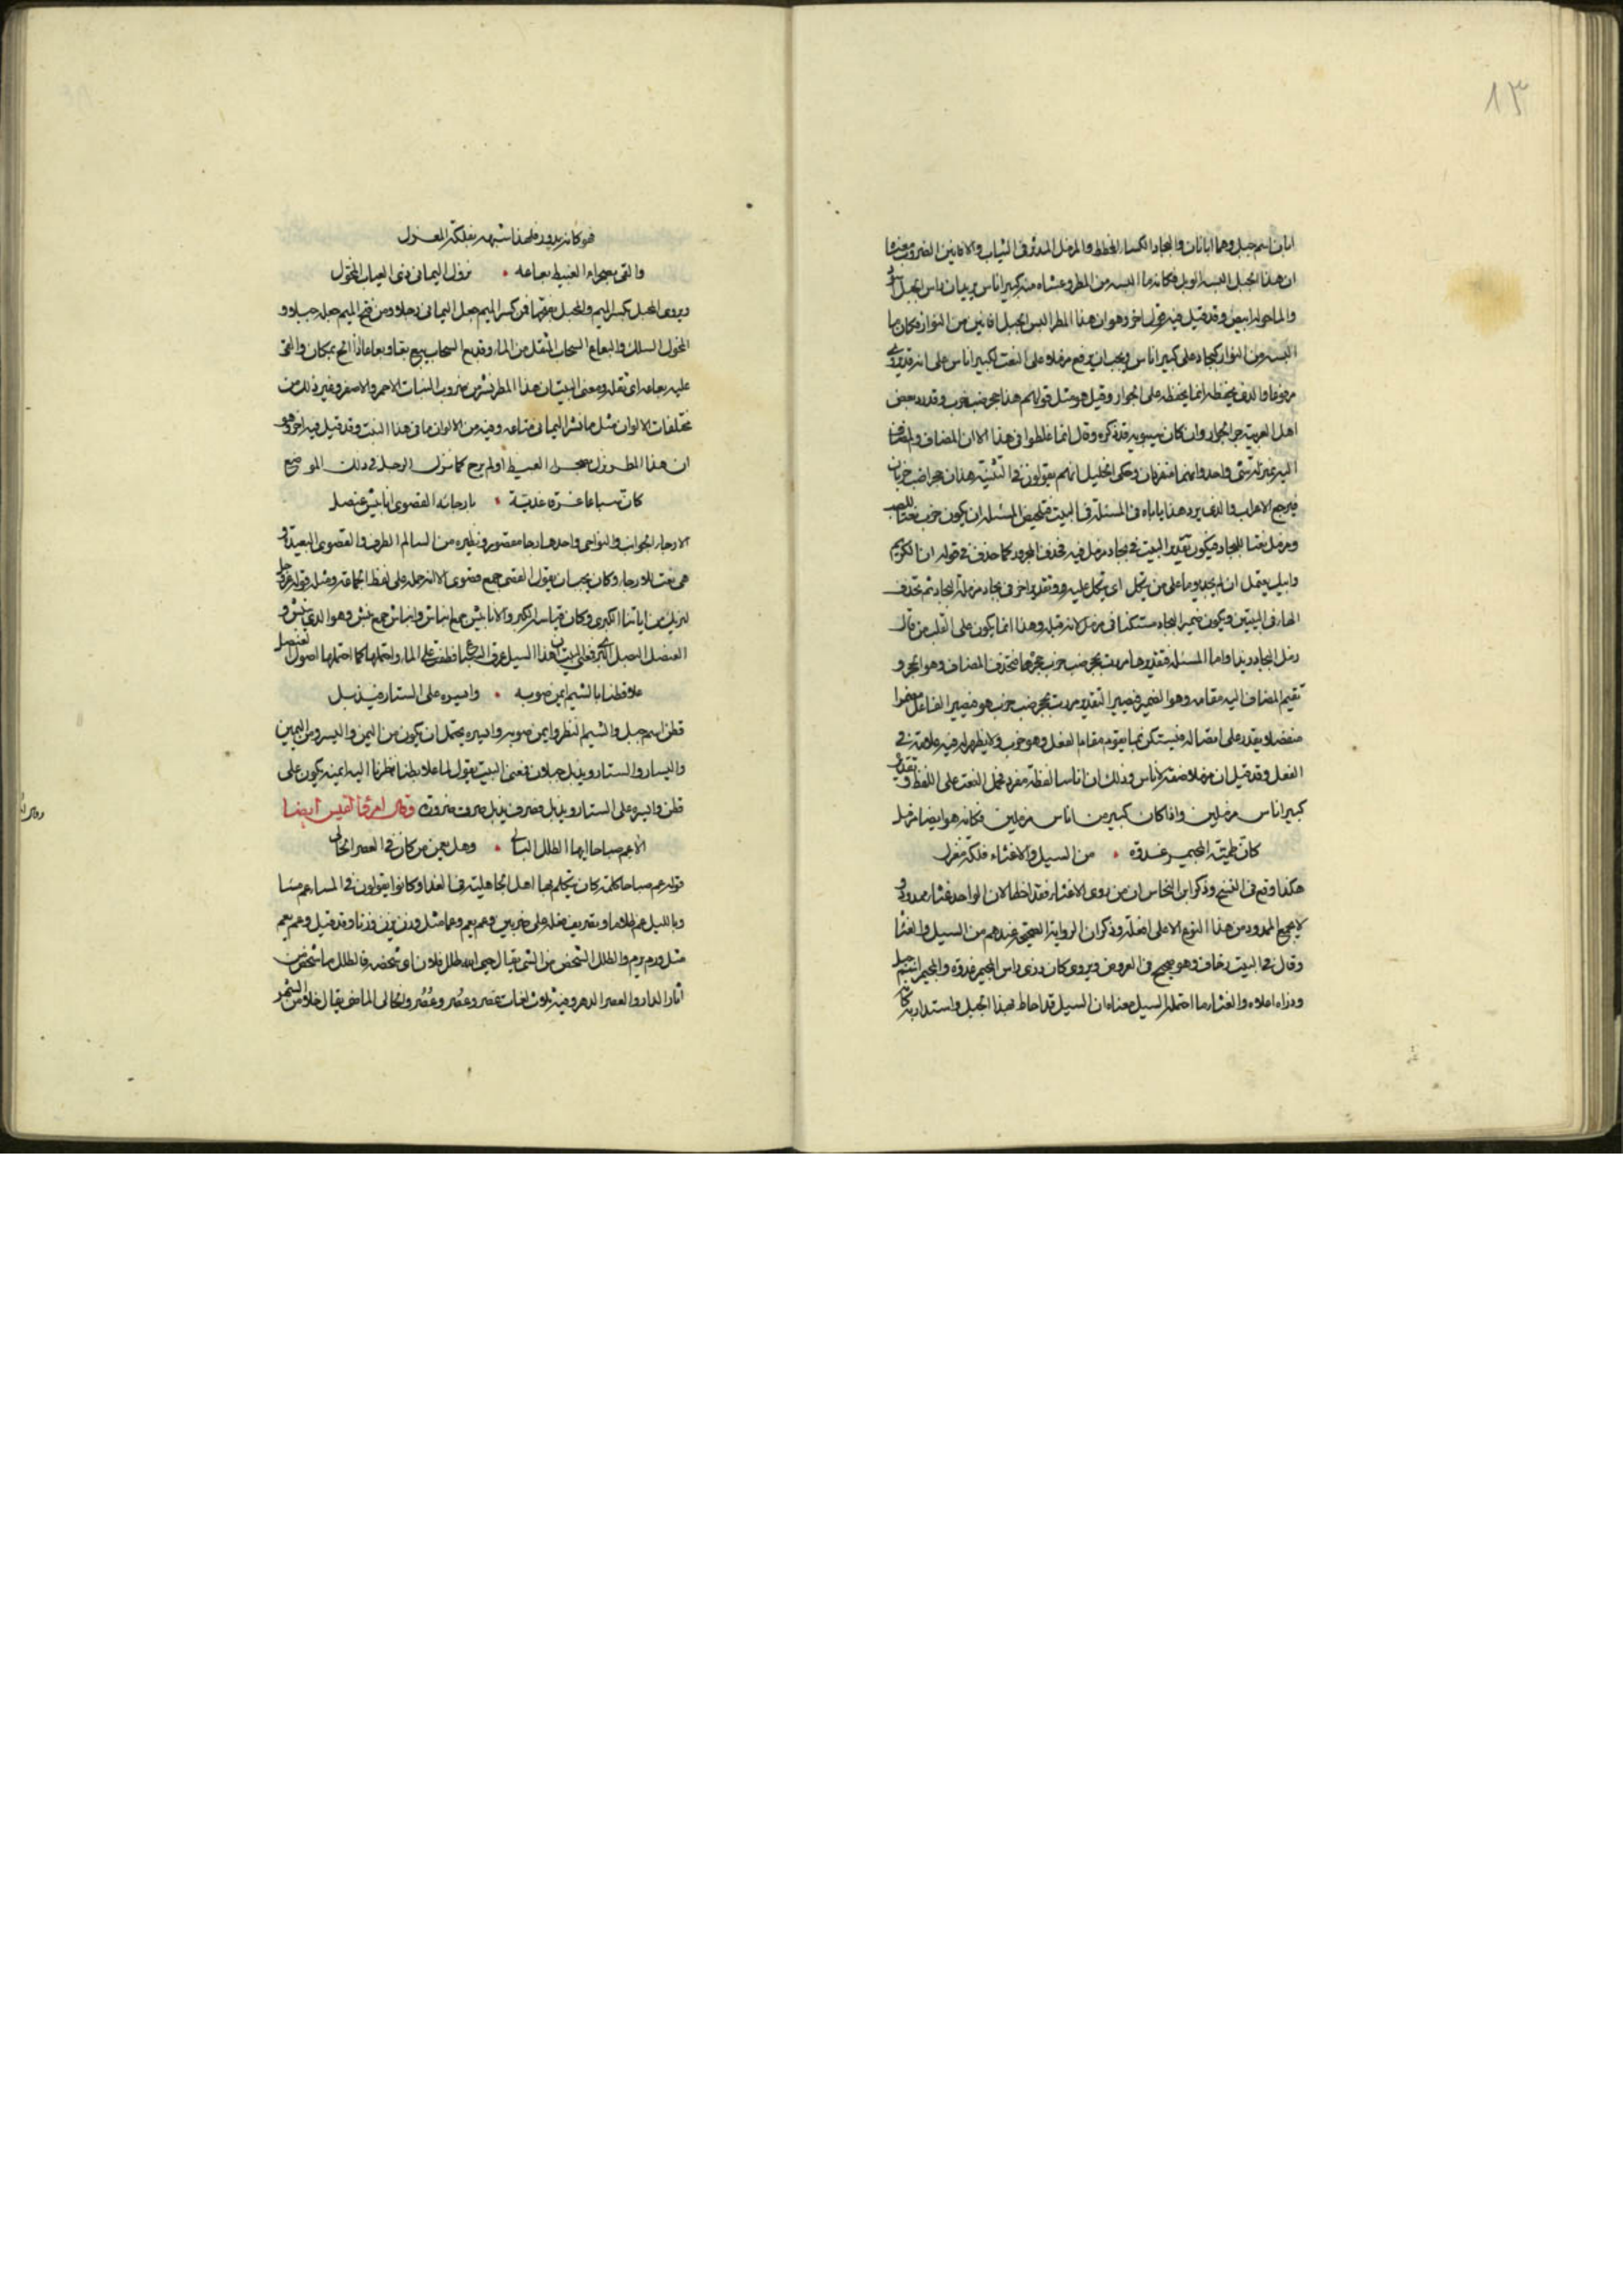 ١٣
ابان اسم جبل وهما ابانان والبجاد الكساء المخطط والمزمل المدثر في الثياب والافانين الضروب معناه
ان هذا الجبل البسه الوبل فكانه مما البسه من المطر وغشاه منه كبير اناس يريد ان راس الجبل اسود
والماء حوله ابيض وقد قيل فيه قول اخر وهو ان هذا المطر البس الجبل افانين من النوار فكان ما
البسه من النوار كبجاد على كبير اناس ويجب ان يرفع مزمل على النعت لكبير اناس على انه قد يروى
مرفوعا والذي يخفضه انما يخفضه على الجوار وقيل هو مثل قولهم هذا جحر ضب خرب وقد رد بعض
اهل العربية جر الجوار وان كان سيبويه قد ذكره وقال انما غلطوا في هذا لان المضاف والمضاف
اليه بمنزلة شي واحد وانهما مفردان وحكى الخليل انهم يقولون في التثنية هذان جحرا ضب خربان
فيرجع الاعراب والذي يرد هذا ياباه في المسئلة وفي البيت فتلخيص المسئلة ان يكون خرب نعتا للضب
ومزمل نعتا للبجاد فيكون تقدير البيت في بجاد مزمل فيه فحذف المجرور كما حذف في قوله ان الكريم
وابيك يعتمل ان لم يجد يوما على من يتكل اي يتكل عليه وتقدير اخر في بجاد مزمله البجاد ثم تحذف
الهاء في البيتين ويكون ضمير البجاد مستكنا في مزمل لانه قبله وهذا انما يكون على القلب من قال
زمل البجاد زيدا واما المسئلة فتقديرها مررت بجحر ضب خرب جحرها فتحذف المضاف وهو الجحر و
تقيم المضاف اليه مقامه وهو الضمير فيصير التقدير مررت بجحر ضب خرب هو فيصير الفاعل مضمرا
منفصلا يقدر على اتصاله فيستكن فيما يقوم مقام الفعل وهو خرب ولا يظهر له فيه علامة في
الفعل وقد قيل ان مزملا صفة لاناس وذلك ان اناسا لفظه مفرد فحمل النعت على اللفظ وتقديره
كبير اناس مزملين واذا كان كبير من اناس مزملين فكانه هو ايضا مزمل
كان طمية المجيمر غدوة • من السيل والاغثاء فلكة مغزل
هكذا وقع في النسخ وذكر ابن النحاس ان من روى الاغثاء فقد اخطا لان الواحد غثاء ممدود و
لا يجمع الممدود من هذا النوع الا على افعلة وذكر ان الرواية الصحيحة عندهم من السيل والغثا
وقال في البيت زحاف وهو صحيح في العروض ويروى كان ذرى راس المجيمر غدوة والمجيمر اسم جبل
وذراه اعلاه والغثاء ما احتمله السيل معناه ان السيل قد احاط بهذا الجبل واستدار به كان
هو كانه يدور فلهذا شبهه بفلكة المغزل
والقى بصحراء الغبيط بعاعه • نزول اليماني ذي العياب المخول
ويروى المحمل بكسر الميم والمحمل بفتحها فمن كسر الميم جعل اليماني رجلا ومن فتح الميم جعله جملا و
المخول السلك والبعاع السحاب المثقل من الماء وقد بع السحاب يبع بعا وبعاعا اذا الح بمكان والقى
عليه بعاعه اي ثقله ومعنى البيت ان هذا المطر نشر من ضروب النبات الاحمر والاصفر وغير ذلك من
مختلفات الالوان مثل ما نشر اليماني متاعه وفيه من الالوان ما في هذا النبت وقد قيل فيه اخر وهو
ان هذا المطر نزل بصحراء الغبيط ولم يبرح كما نزل الرجل في ذلك الموضع
كان سباعا غرقى غدية • بارجائه القصوى انابيش عنصل
الارجاء الجوانب والنواحي واحدها رجا مقصور ونظيره من السالم الطرف والقصوى البعيدة و
هي نعت للارجاء وكان يجب ان يقول القصى جمع قصوى الا انه حمله على لفظ الجماعة ومثله قوله عز وجل
لنريك من اياتنا الكبرى وكان قياسه الكبر والانابيش جمع انباش وانباش جمع نبش وهو الذي ينبش و
العنصل البصل البري فمعنى البيت ان هذا السيل غرق السباع فطفت على الماء واحتملها كما احتملها اصول العنصل
علا قطنا بالشيم ايمن صوبه • وايسره على الستار فيذبل
قطن اسم جبل والشيم النظر وايمن صوبه وايسره يحتمل ان يكون من اليمن واليسر ومن اليمين
واليسار والستار ويذبل جبلان فمعنى البيت يقول لما علا قطنا نظرنا اليه ايمنه يكون على
قطن وايسره على الستار ويذبل فصرف يذبل صرف ضرورة وقال امرؤ القيس ايضا
الا عم صباحا ايها الطلل البالي • وهل يعمن من كان في العصر الخالي
قوله عم صباحا كلمة كان يتكلم بها اهل الجاهلية في الغداة وكانوا يقولون في المساء عم مساء
وبالليل عم ظلاما وتصريف فعله على ضربين وعم يعم وعما مثل وزن يزن وزنا وقد قيل وعم يعم
مثل ورم يرم والطلل الشخص من الشي يقال حيى الله طلل فلان اي شخصه فالطلل ما شخص من
اثار الدار والعصر الدهر وفيه ثلاث لغات عَصر وعُصر وعُصُر والخالي الماضي يقال خلا من الشهر